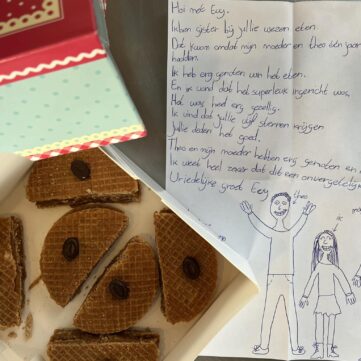 Hoi met Esy.
ben gister bij jullie wezen eten.
Dat kwam omdat mijn moeder en theo één jaar
hadden.
Ik heb erg genoten van het eten.
En ik vind dat het superleuk ingericht was,
Het was heel erg gezellig.
Ik vind dat jullie vijf sterren krijgen
Jullie deden het goed.
Theo en mijn moeder hebben erg genoten en
Ik weet heel zeker dat dit een onvergetelij
Vriendelijke groet Esy
theo
ik